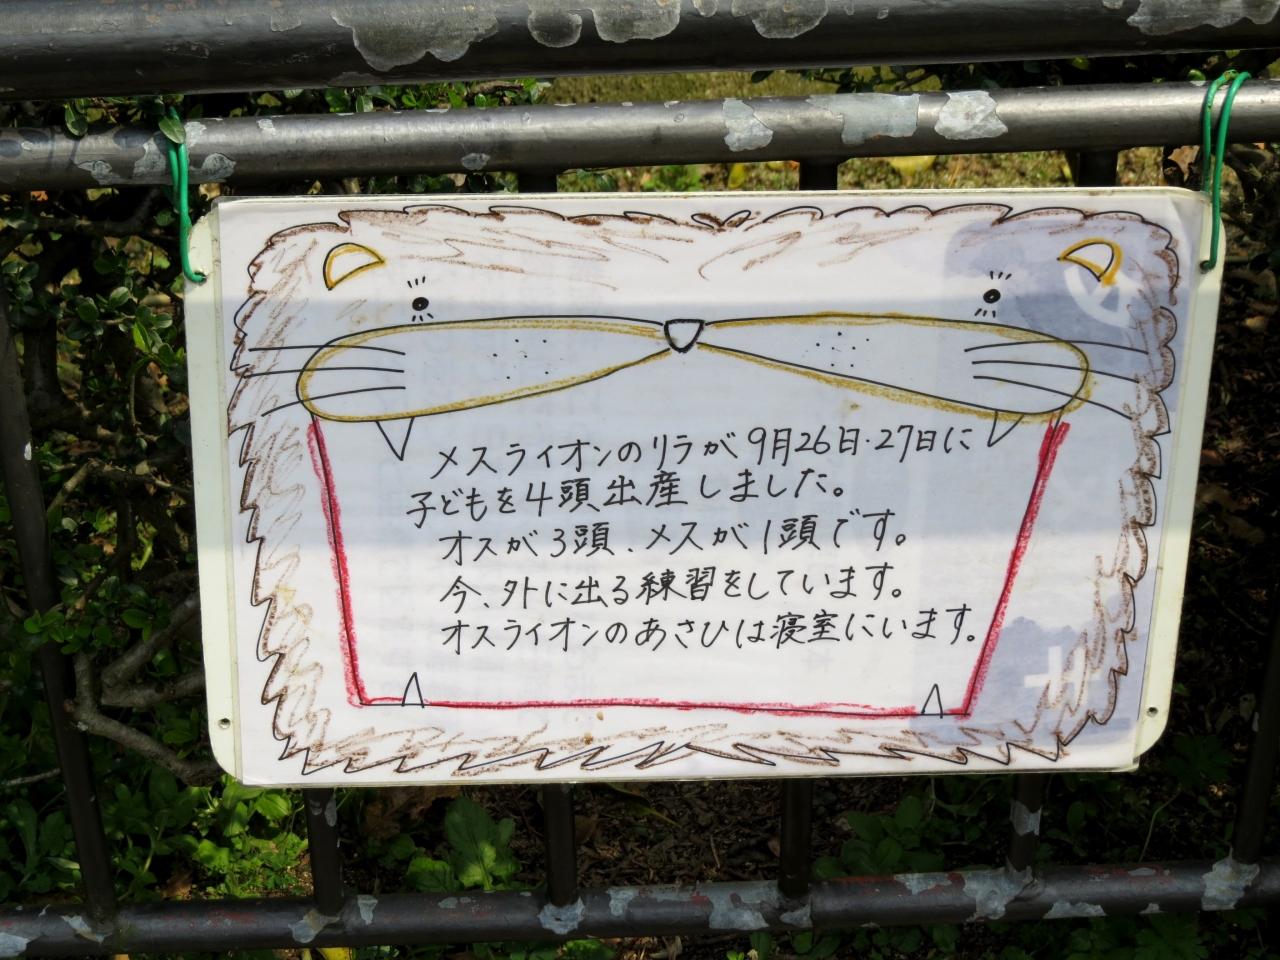 メスライオンのリラが9月26日・27日に
子どもを4頭出産しました。
オスが3頭、メスが1頭です。
今、外に出る練習をしています。
オスライオンのあさひは寝室にいます。